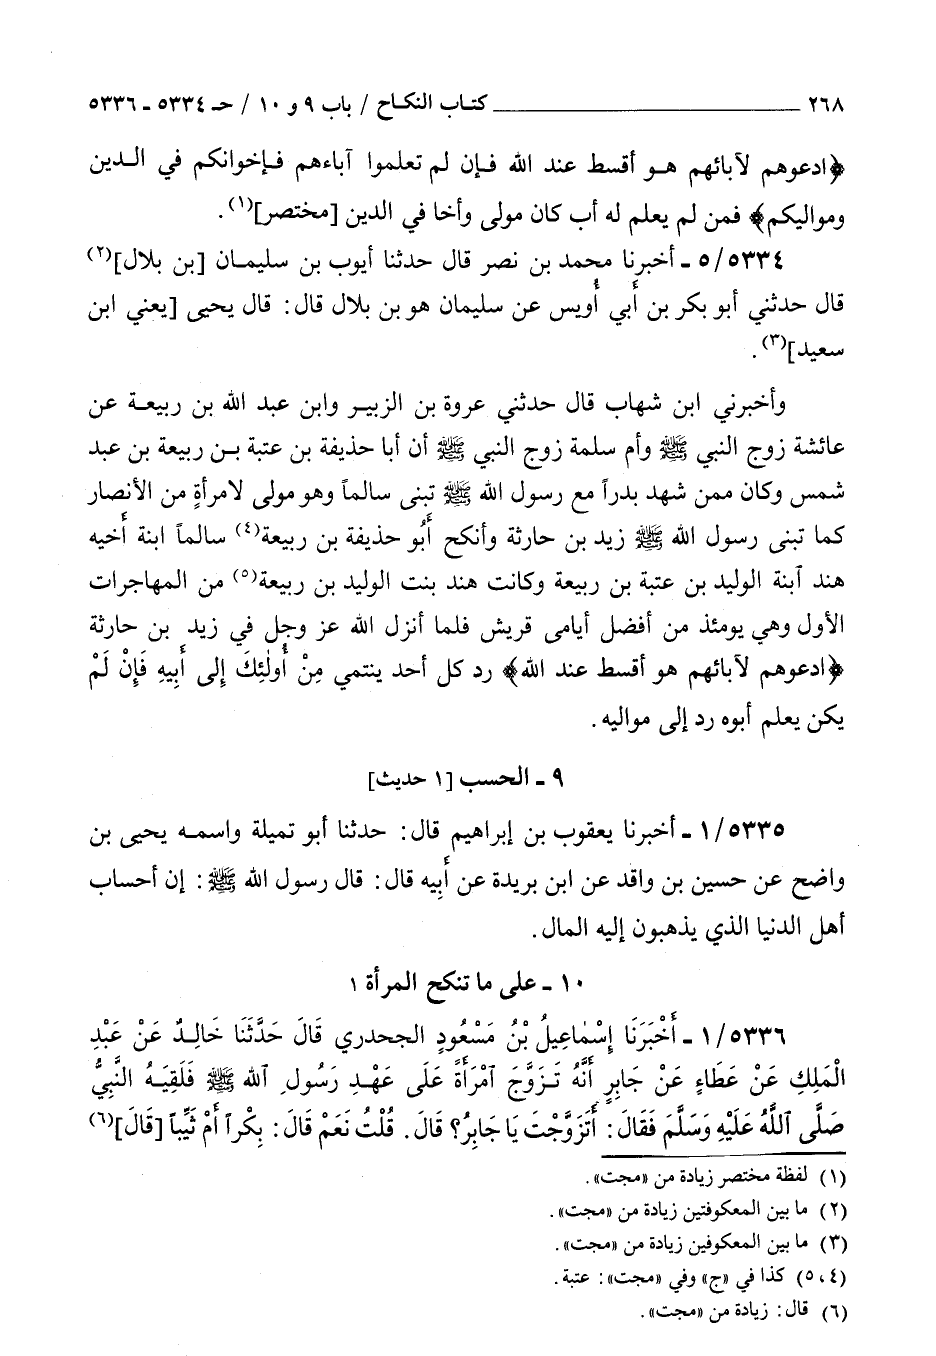 ٢٦٨ ــــــــــــــــــــــــ كتاب النكاح / باب ٩ و ١٠ / حـ ٥٣٣٤ ـ ٥٣٣٦
﴿ادعوهم لآبائهم هـو أقسط عند الله فـإن لم تعلموا آباءهم فـإخوانكم في الـدين
ومواليكم﴾ فمن لم يعلم له أب كان مولى وأخا في الدين [مختصر](١).
٥/٥٣٣٤ ـ أخبرنا محمد بن نصر قال حدثنا أيوب بن سليمـان [بن بلال](٢)
قال حدثني أبو بكر بن أَبي أُويس عن سليمان هو بن بلال قال: قال يحيى [يعني ابن
سعيد](٣).
وأخبرني ابن شهاب قال حدثني عروة بن الزبيـر وابن عبد الله بن ربيعـة عن
عائشة زوج النبي ﷺ وأم سلمة زوج النبي ﷺ أن أبا حذيفة بن عتبة بـن ربيعة بن عبد
شمس وكان ممن شهد بدراً مع رسول الله ﷺ تبنى سالماً وهو مولى لامرأةٍ من الأنصار
كما تبنى رسول الله ﷺ زيد بن حارثة وأنكح أَبُو حذيفة بن ربيعة(٤) سالماً ابنة أخيه
هند آبنة الوليد بن عتبة بن ربيعة وكانت هند بنت الوليد بن ربيعة(٥) من المهاجرات
الأول وهي يومئذ من أفضل أيامى قريش فلما أنزل الله عز وجل في زيد بن حارثة
﴿ادعوهم لآبائهم هو أقسط عند الله﴾ رد كل أحد ينتمي مِنْ أُولٰئِكَ إِلى أَبِيهِ فَإِنْ لَمْ
يكن يعلم أبوه رد إلى مواليه.
٩ ـ الحسب [١ حديث]
١/٥٣٣٥ ـ أخبرنا يعقوب بن إبراهيم قال: حدثنا أبو تميلة واسمـه يحيى بن
واضح عن حسين بن واقد عن ابن بريدة عن أَبيه قال: قال رسول الله ﷺ: إن أحساب
أهل الدنيا الذي يذهبون إليه المال.
١٠ ـ على ما تنكح المرأة ١
١/٥٣٣٦ ـ أَخْبَرَنَا إِسْمَاعِيلُ بْنُ مَسْعُودٍ الجحدري قَالَ حَدَّثَنَا خَالِـدٌ عَنْ عَبْدِ
الْمَلِكِ عَنْ عَطَاءٍ عَنْ جَابِرٍ أَنَّهُ تَـزَوَّجَ آمْرَأَةً عَلَى عَهْـدِ رَسُولِ ٱلله ﷺ فَلَقِيَـهُ النَّبِيُّ
صَلَّى ٱللَّهُ عَلَيْهِ وَسَلَّمَ فَقَالَ: أَتَزَوَّجْتَ يَا جَابِرُ؟ قَالَ. قُلْتُ نَعَمْ قَالَ: بِكْراً أَمْ ثَيِّباً [قَالَ](٦)
(١) لفظة مختصر زيادة من «مجت».
(٢) ما بين المعكوفتين زيادة من «مجت».
(٣) ما بين المعكوفين زيادة من «مجت».
(٤، ٥) كذا في «ج» وفي «مجت»: عتبة.
(٦) قال: زيادة من «مجت».